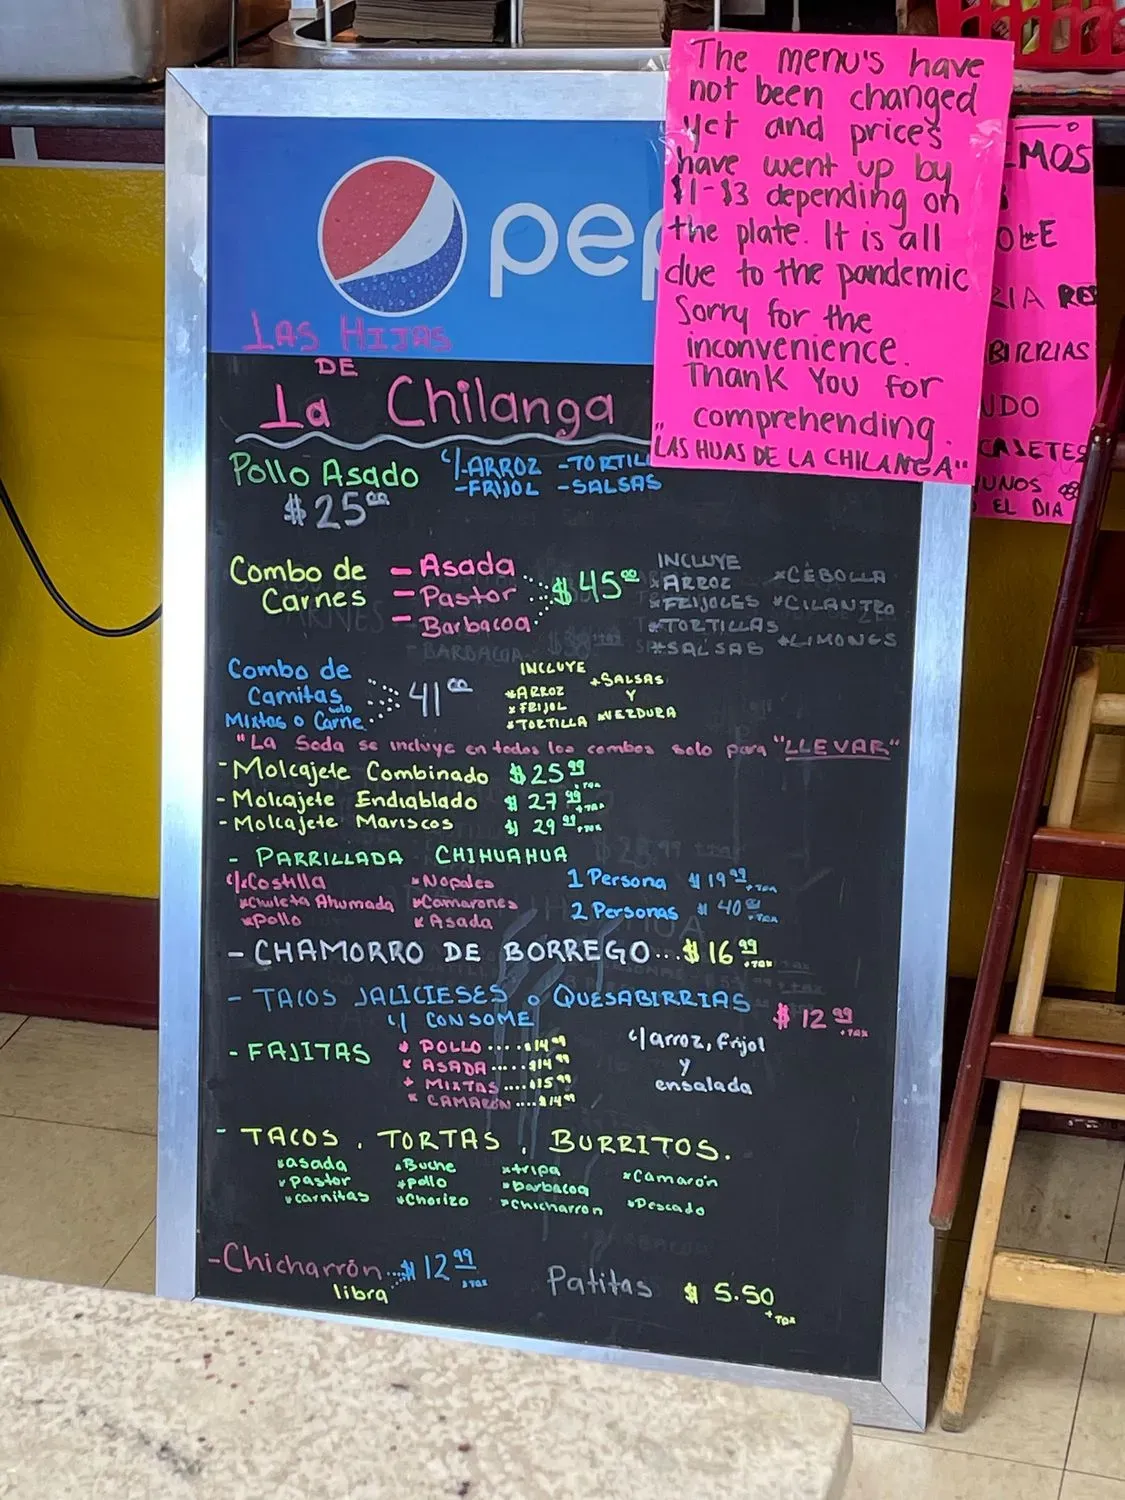 The menu's have
not been changed
yet and prices
have went up by
$1-$3 depending on
the plate. It is all
due to the pandemic
Sorry for the
inconvenience.
Thank You for
comprehending.
"LAS HIJAS DE LA CHILANGA"
BIRRIAS
EL DIA
LAS HIJAS
DE
La Chilanga
Pollo Asado c/-ARROZ
-FRIJOL -SALSAS
$25.00
Combo de Carnes
- Asada
- Pastor
- Barbacoa
$45.00
INCLUYE
*ARROZ *CEBOLLA
*FRIJOLES *CILANTRO
*TORTILLAS
*SALSAS *LIMONES
Combo de
Carnitas
solo
Mixtas o Carne
41.00
INCLUYE
*ARROZ *SALSAS
*FRIJOL Y
*TORTILLA *VERDURA
"La Soda se incluye en todos los combos solo para "LLEVAR"
- Molcajete Combinado $25.99 +TAX
- Molcajete Endiablado $27.99 +TAX
- Molcajete Mariscos $29.99 +TAX
- PARRILLADA CHIHUAHUA
c/*Costilla *Nopales 1 Persona $19.99 +TAX
*Chuleta Ahumada *Camarones 2 Personas $40 +TAX
*Pollo *Asada
- CHAMORRO DE BORREGO...$16.99 +TAX
- TACOS JALICIESES o QUESABIRRIAS $12.99 +TAX
c/ CONSOME
- FAJITAS
* POLLO....$14.99
* ASADA.....$14.99
* MIXTAS....$15.99
* CAMARON....$14.99
c/arroz, Frijol
y
ensalada
- TACOS, TORTAS, BURRITOS.
*asada *Buche *tripa *Camarón
*pastor *pollo *barbacoa
*carnitas *Chorizo *chicharron *Pescado
-Chicharrón...$12.99 +TAX
libra
Patitas $5.50
+TAX